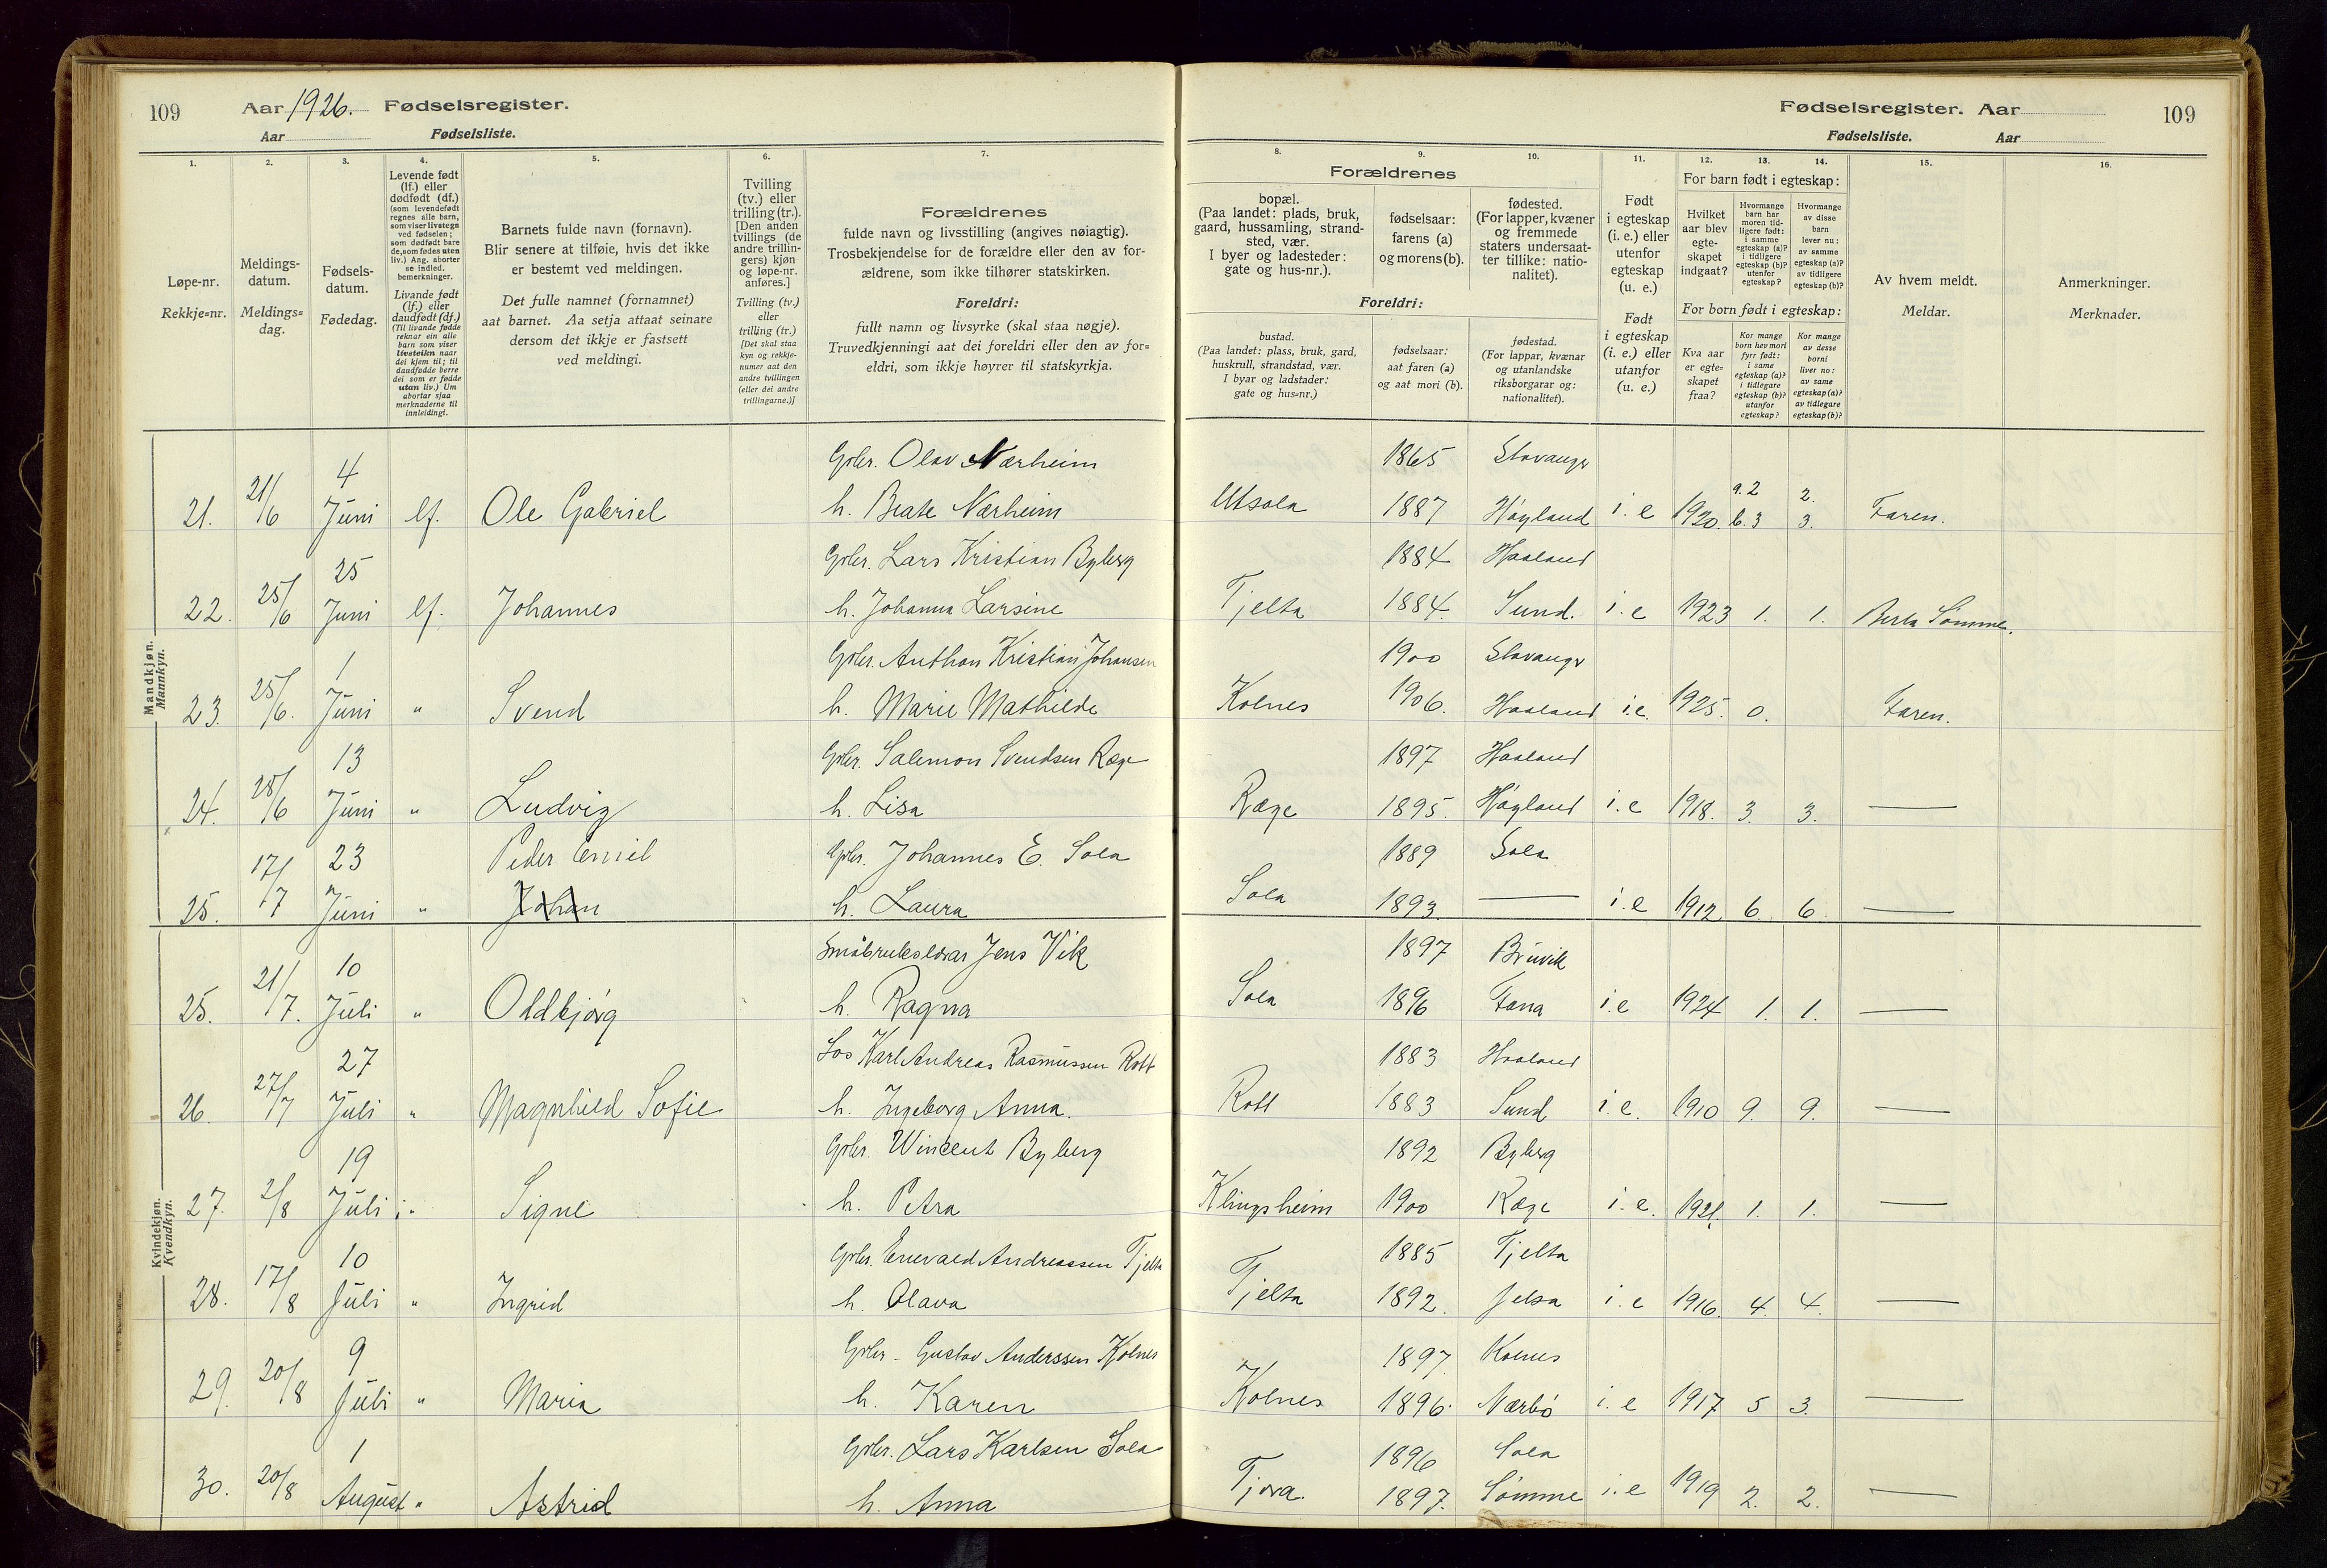 109 Aar 1926. Fødselsregister.
Aar Fødselsliste.
Fødselsregister. Aar 109
Fødselsliste. Aar
1. 2. 3. 4. 5. 6. 7.
Løpe-nr.
Rekkje=nr.
Meldings-
datum.
Meldings=
dag.
Fødsels-
datum.
Fødedag.
Levende født
(lf.) eller
dødfødt (df.)
(som levendefødt
regnes alle barn,
som viser livstegn
ved fødselen;
som dødfødt bare
de, som fødes uten
liv.) Ang. aborter
se indled.
bemerkninger.
Livande født
(lf.) eller
daudfødt (df.)
(Til livande fødde
reknar ein alle
barn som viser
livsteikn naar
dei kjem til; til
daudfødde berre
dei som er fødde
utan liv.) Um
abortar sjaa
merknaderne til
innleidingi.
Barnets fulde navn (fornavn).
Blir senere at tilføie, hvis det ikke
er bestemt ved meldingen.
Det fulle namnet (fornamnet)
aat barnet. Aa setja attaat seinare
dersom det ikkje er fastsett
ved meldingi.
Tvilling
(tv.) eller
trilling (tr.).
[Den anden
tvillings (de
andre trillin-
gers) kjøn
og løpe-nr.
anføres.]
Tvilling (tv.)
eller
trilling (tr.)
[Det skal staa
kyn og rekkje-
numer aat den
andre tvillingen
(eller dei andre
trillingarne.)]
Forældrenes
fulde navn og livsstilling (angives nøiagtig).
Trosbekjendelse for de forældre eller den av for-
ældrene, som ikke tilhører statskirken.
Foreldri:
fullt namn og livsyrke (skal staa nøgje).
Truvedkjenningi aat dei foreldri eller den av for=
eldri, som ikkje høyrer til statskyrkja.
8. 9. 10. 11. 12. 13. 14. 15. 16.
Forældrenes
bopæl.
(Paa landet: plads, bruk,
gaard, hussamling, strand-
sted, vær.
I byer og ladesteder:
gate og hus-nr.).
fødselsaar:
farens (a)
og morens (b).
fødested.
(For lapper, kvæner
og fremmede
staters undersaat-
ter tillike: natio-
nalitet).
Foreldri:
bustad.
(Paa landet: plass, bruk, gard,
huskrull, strandstad, vær.
I byar og ladstader:
gate og hus=nr.)
fødselsaar:
aat faren (a)
og aat mori (b).
fødestad.
(For lappar, kvænar
og utanlandske
riksborgarar og:
nationalitet).
Født
i egteskap
(i. e.) eller
utenfor
egteskap
(u. e.)
Født
i egteskap
(i. e.) eller
utanfor
egteskap
(u. e.)
For barn født i egteskap:
Hvilket
aar blev
egte-
skapet
indgaat?
Hvormange
barn har
moren tid-
ligere født:
i samme
egteskap (a)?
i tidligere
egteskap (b)?
utenfor
egteskap?
Hvormange
av disse
barn
lever nu:
av samme
egteskap (a)?
av tidligere
egteskap (b)?
For born født i egteskap:
Kva aar
er egte-
skapet
fraa?
Kor mange
born hev mori
fyrr født:
i same
egteskap (a)?
i tidlegare
egteskap (b)?
utanfor
egteskap?
Kor mange
av desse
borni
liver no:
av same
egteskap (a)?
av tidlegare
egteskap (b)?
Av hvem meldt.
Meldar.
Anmerkninger.
Merknader.
Mandkjøn.
Mannkyn.
4 Gbr. Olav Nærheim 1865 Stavanger
21. 21/6 Juni lf. Ole Gabriel h. Beate Nærheim Utsola 1887 Høyland i. e 1920. a. 2 b. 3 2. 3. Faren.
25 Gbr. Lars Kristian Byberg 1884 Haaland
22. 25/6 Juni lf. Johannes h. Johanna Larsine Tjelta 1884. Sund. i. e 1923 1. 1. Berta Sømme.
1 Gbr. Anthon Kristian Johansen 1900 Stavanger
23. 25/6. Juni " Svend h. Marie Mathilde Kolnes 1906. Haaland i. e. 1925. 0. Faren.
13 Gbr. Salemon Svendsen Ræge 1897 Haaland
24. 28/6 Juni " Ludvig h. Lisa Ræge 1895. Høyland i. e 1918. 3. 3. —
23 Peder Emil Gbr. Johannes E. Sola 1889 Sola
25. 17/7 Juni " Johan h. Laura Sola 1893. — i. e 1912 6. 6 —
Kvindekjøn.
Kvendkyn.
10 Småbrukslærar Jens Vik 1897 Bruvik
25. 21/7. Juli " Oldbjørg h. Ragna Sola 1896 Fana i. e 1924 1. 1. —
27 Los Karl Andreas Rasmussen Rott 1883 Haaland
26. 27/7 Juli " Magnhild Sofie h. Ingeborg Anna. Rott 1883 Sund i. e. 1910 9. 9. —
19 Gbr. Wincent Byberg 1892 Byberg
27. 2/8 Juli " Signe h. Petra Klingsheim 1900 Ræge i. e. 1921. 1. 1. —
10 Gbr. Enevald Andreassen Tjelta 1885 Tjelta
28. 17/8 Juli " Ingrid h. Olava Tjelta 1892. Jelsa i. e 1916. 4. 4. —
9 Gbr. Gustav Anderssen Kolnes 1897. Kolnes
29. 20/8 Juli " Maria h. Karen Kolnes 1896. Nærbø i. e 1917 5 3. —
1 Gbr. Lars Karlsen Sola 1896 Sola
30. 20/8 August " Astrid h. Anna Tjora. 1897. Sømme i. e 1919 2. 2. —